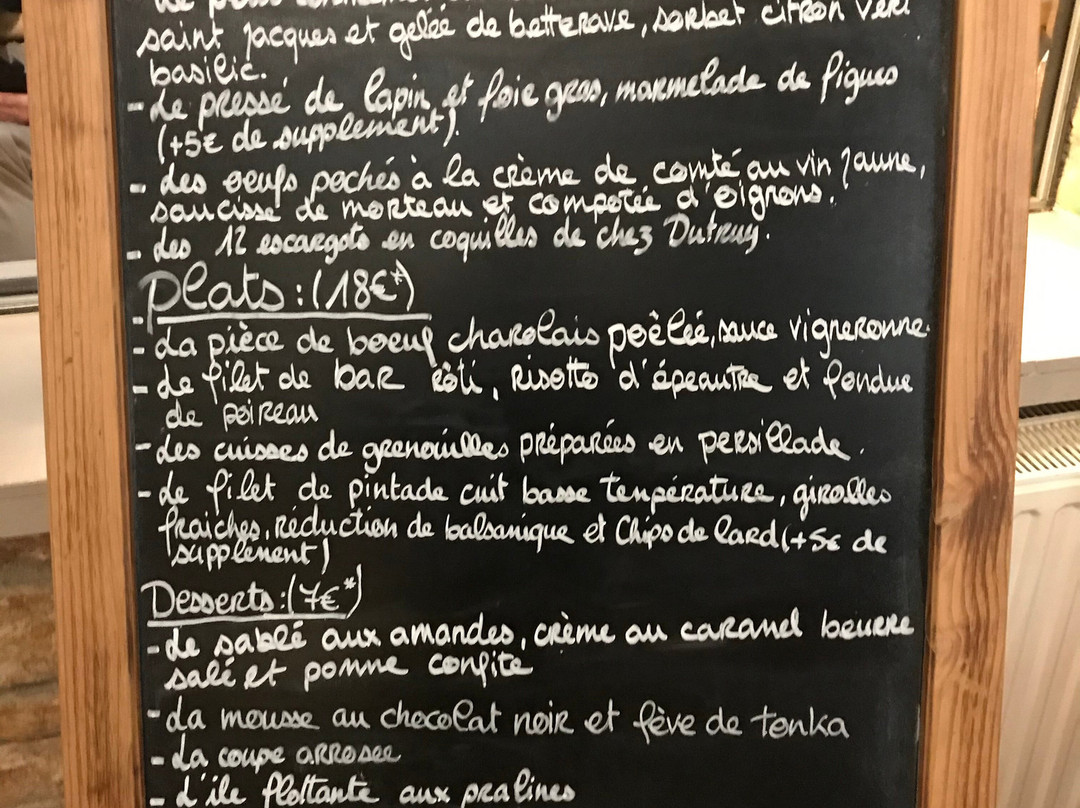 saint jacques et gelée de betterave, sorbet citron vert
basilic.
- Le pressé de lapin et foie gras, marmelade de figues
(+5€ de supplément).
- Les oeufs pochés à la crème de comté au vin jaune,
saucisse de morteau et compotée d'oignons.
- Les 12 escargots en coquilles de chez Dutruy.
Plats : (18€*)
- La pièce de boeuf charolais poêlée, sauce vigneronne.
- Le filet de bar rôti, risotto d'épeautre et fondue
de poireau
- Les cuisses de grenouilles préparées en persillade.
- Le filet de pintade cuit basse température, girolles
fraiches, réduction de balsamique et Chips de lard (+5€ de
supplément)
Desserts : (7€*)
- Le sablé aux amandes, crème au caramel beurre
salé et pomme confite
- La mousse au chocolat noir et fève de tonka
- La coupe arrosée
- L'ile flottante aux pralines